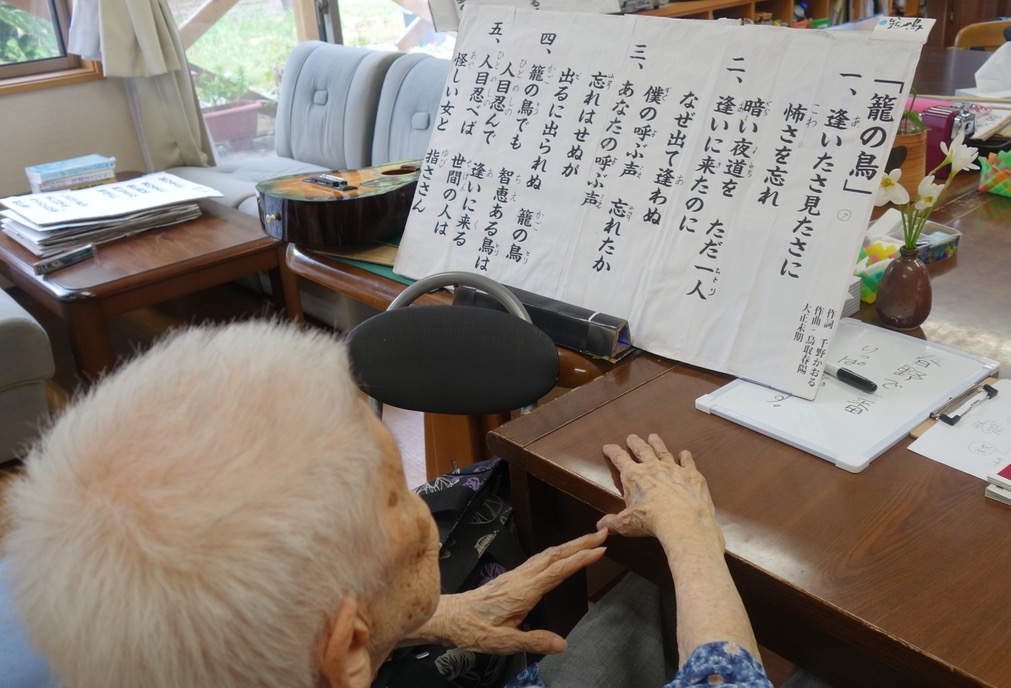 「籠の鳥」
一、逢いたさ見たさに
怖さを忘れ
暗い夜道を ただ一人
二、逢いに来たのに
なぜ出て逢わぬ
僕の呼ぶ声 忘れたか
三、あなたの呼ぶ声
忘れはせぬが
出るに出られぬ 籠の鳥
四、籠の鳥でも 智恵ある鳥は
人目忍んで 逢いに来る
五、人目忍べば 世間の人は
怪しい女と 指ささん
作詞 千野かおる
作曲・鳥取春陽
大正末期